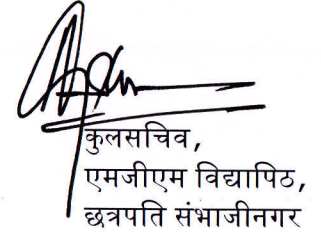 कुलसचिव,
एमजीएम विद्यापिठ,
छत्रपति संभाजीनगर